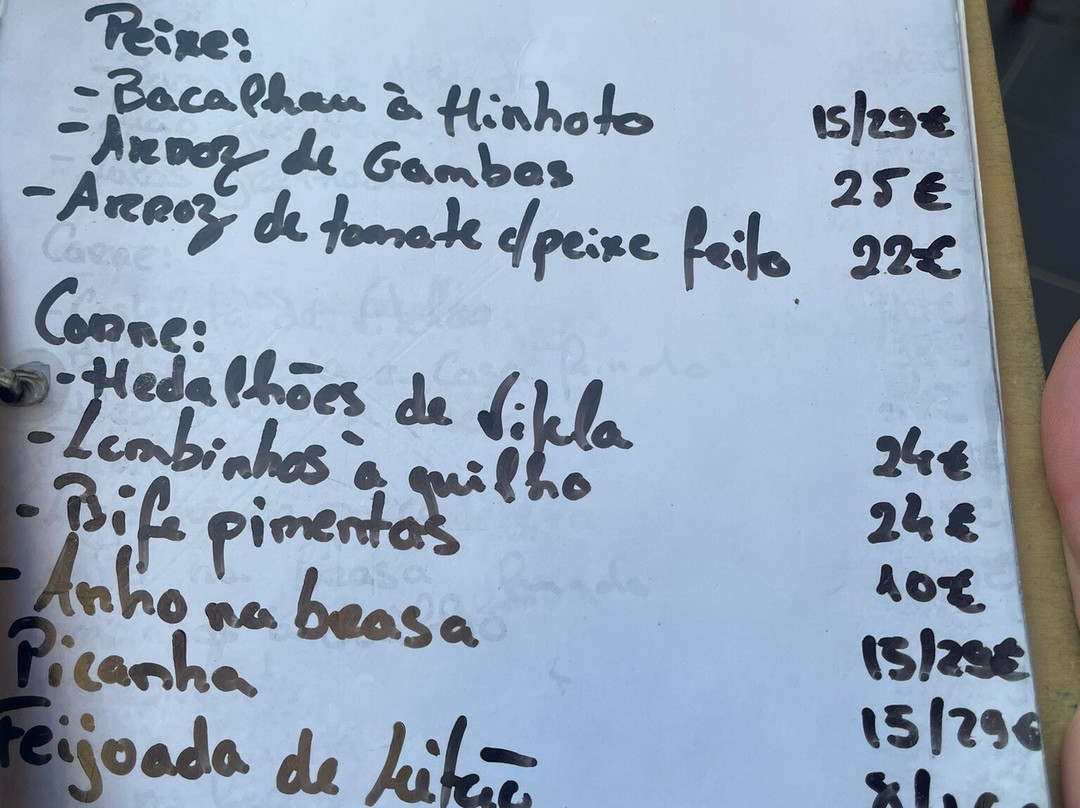 Peixe:
- Bacalhau à Minhoto 15/29€
- Arroz de Gambas 25€
- Arroz de tomate c/peixe feito 22€
Carne:
- Medalhões de Vitela 24€
- Lombinhos à quilho 24€
- Bife pimentas 10€
- Anho na brasa 15/29€
Picanha 15/29€
Feijoada de Leitão